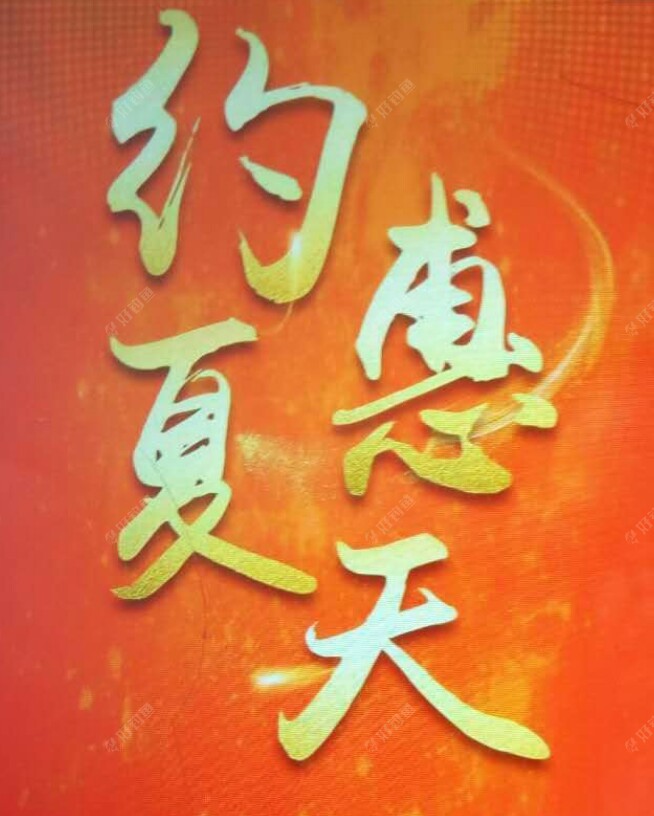 约惠
夏天